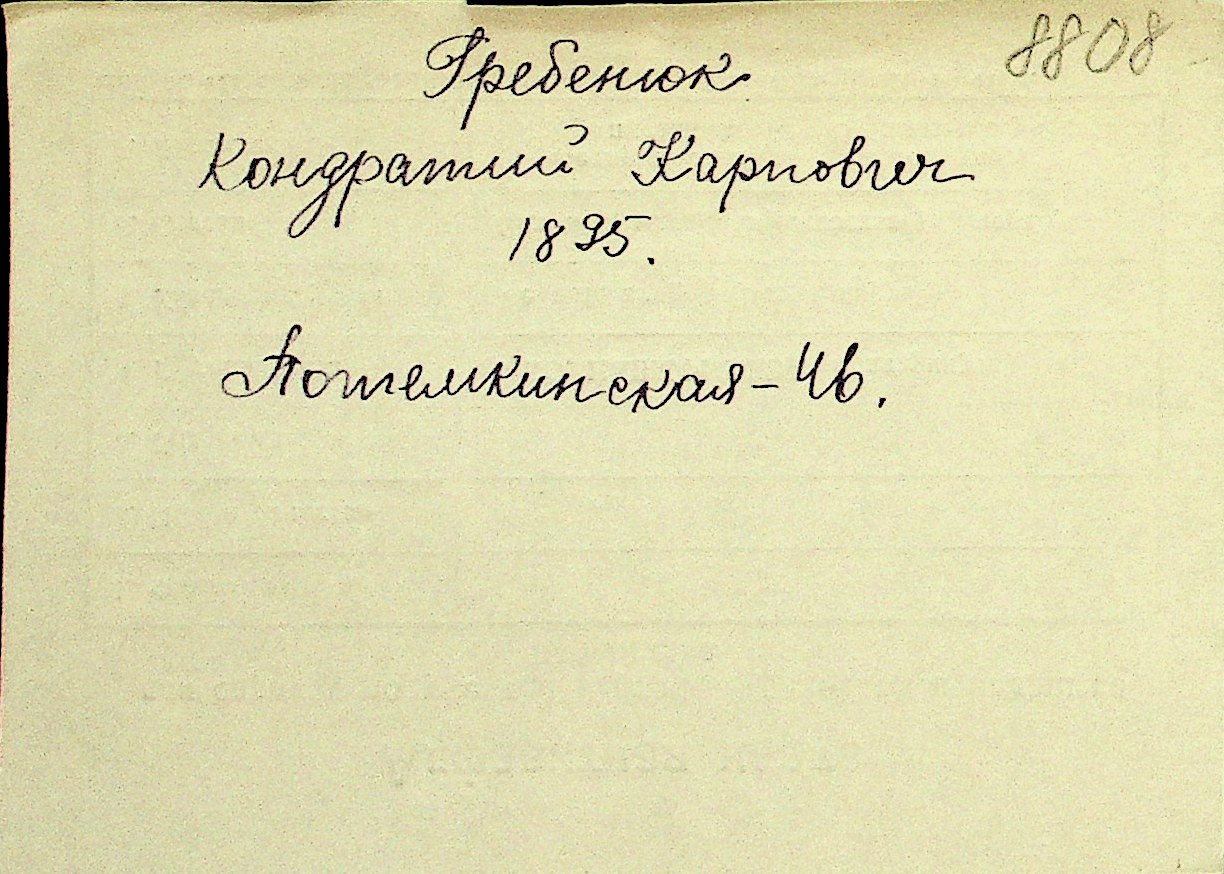 8808
Гребенюк
Кондратий Карпович
1895.
Потемкинская – 46.